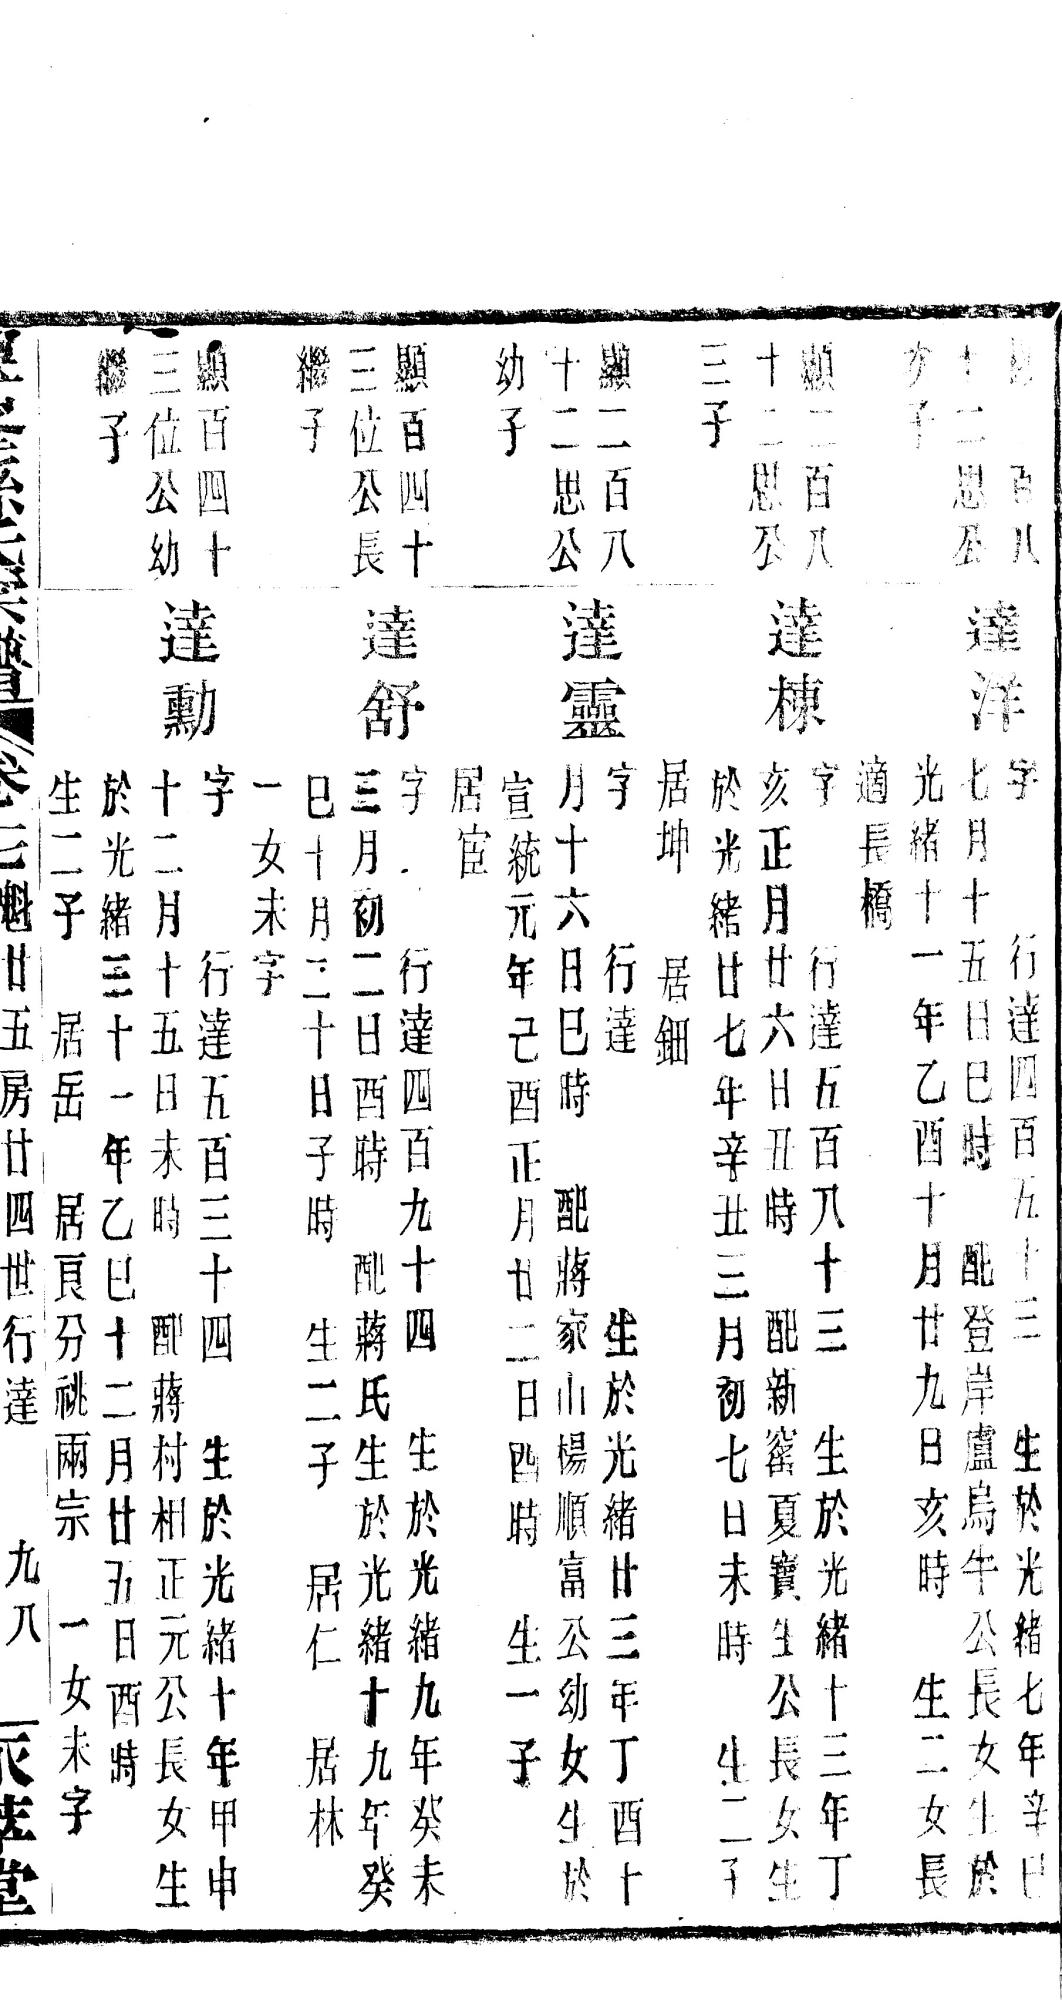 百八
十二思公
次子
達洋
字　行達四百五十三　生於光緒七年辛巳
七月十五日巳時　配登岸盧烏牛公長女生於
光緒十一年乙酉十月廿九日亥時　生二女長
適長橋
顯二百八
十二思公
三子
達棟
字　行達五百八十三　生於光緒十三年丁
亥正月廿六日丑時　配新窰夏寶生公長女生
於光緒廿七年辛丑三月初七日未時　生二子
居坤　居鈿
顯二百八
十二思公
幼子
達靈
字　行達　生於光緒廿三年丁酉十
月十六日巳時　配蔣家山楊順富公幼女生於
宣統元年己酉正月廿二日酉時　生一子
居宦
顯百四十
三位公長
繼子
達舒
字　行達四百九十四　生於光緒九年癸未
三月初二日酉時　配蔣氏生於光緒十九年癸
巳十月二十日子時　生二子　居仁　居林
一女未字
顯百四十
三位公幼
繼子
達勳
字　行達五百三十四　生於光緒十年甲申
十二月十五日未時　配蔣村相正元公長女生
於光緒三十一年乙巳十二月廿五日酉時
生二子　居岳　居頁分祧兩宗　一女未字
魁廿五房廿四世行達　九八